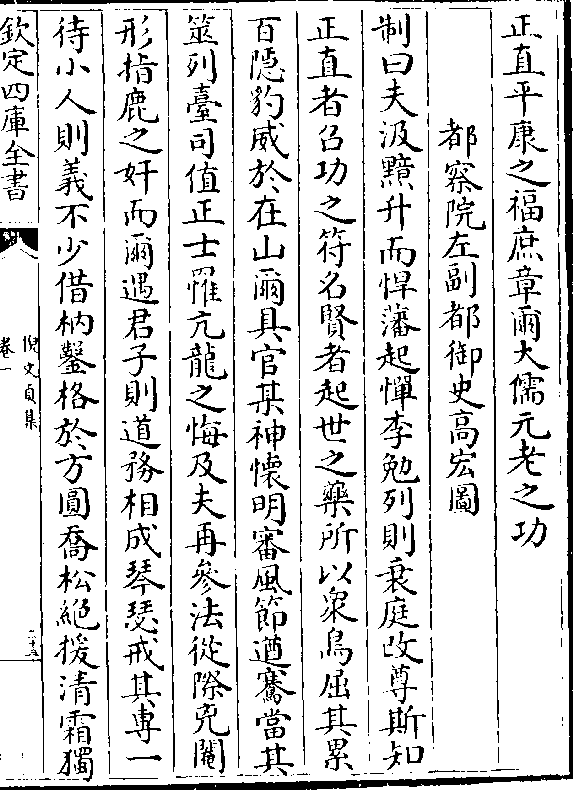 正直平康之福庶章爾大儒元老之功
都察院左副都御史高宏圖
制曰夫汲黯升而悍藩起憚李勉列則衰庭改尊斯知
正直者召功之符名賢者起世之藥所以眾鳥屈其累
百隱豹威於在山爾具官某神懷明審風節遒騫當其
筮列臺司值正士罹亢龍之悔及夫再參法從際兇閹
形指鹿之奸而爾遇君子則道務相成琴瑟戒其専一
待小人則義不少借枘鑿格於方圓喬松絶援清霜獨
欽定四庫全書
倪文貞集
卷一
二十五